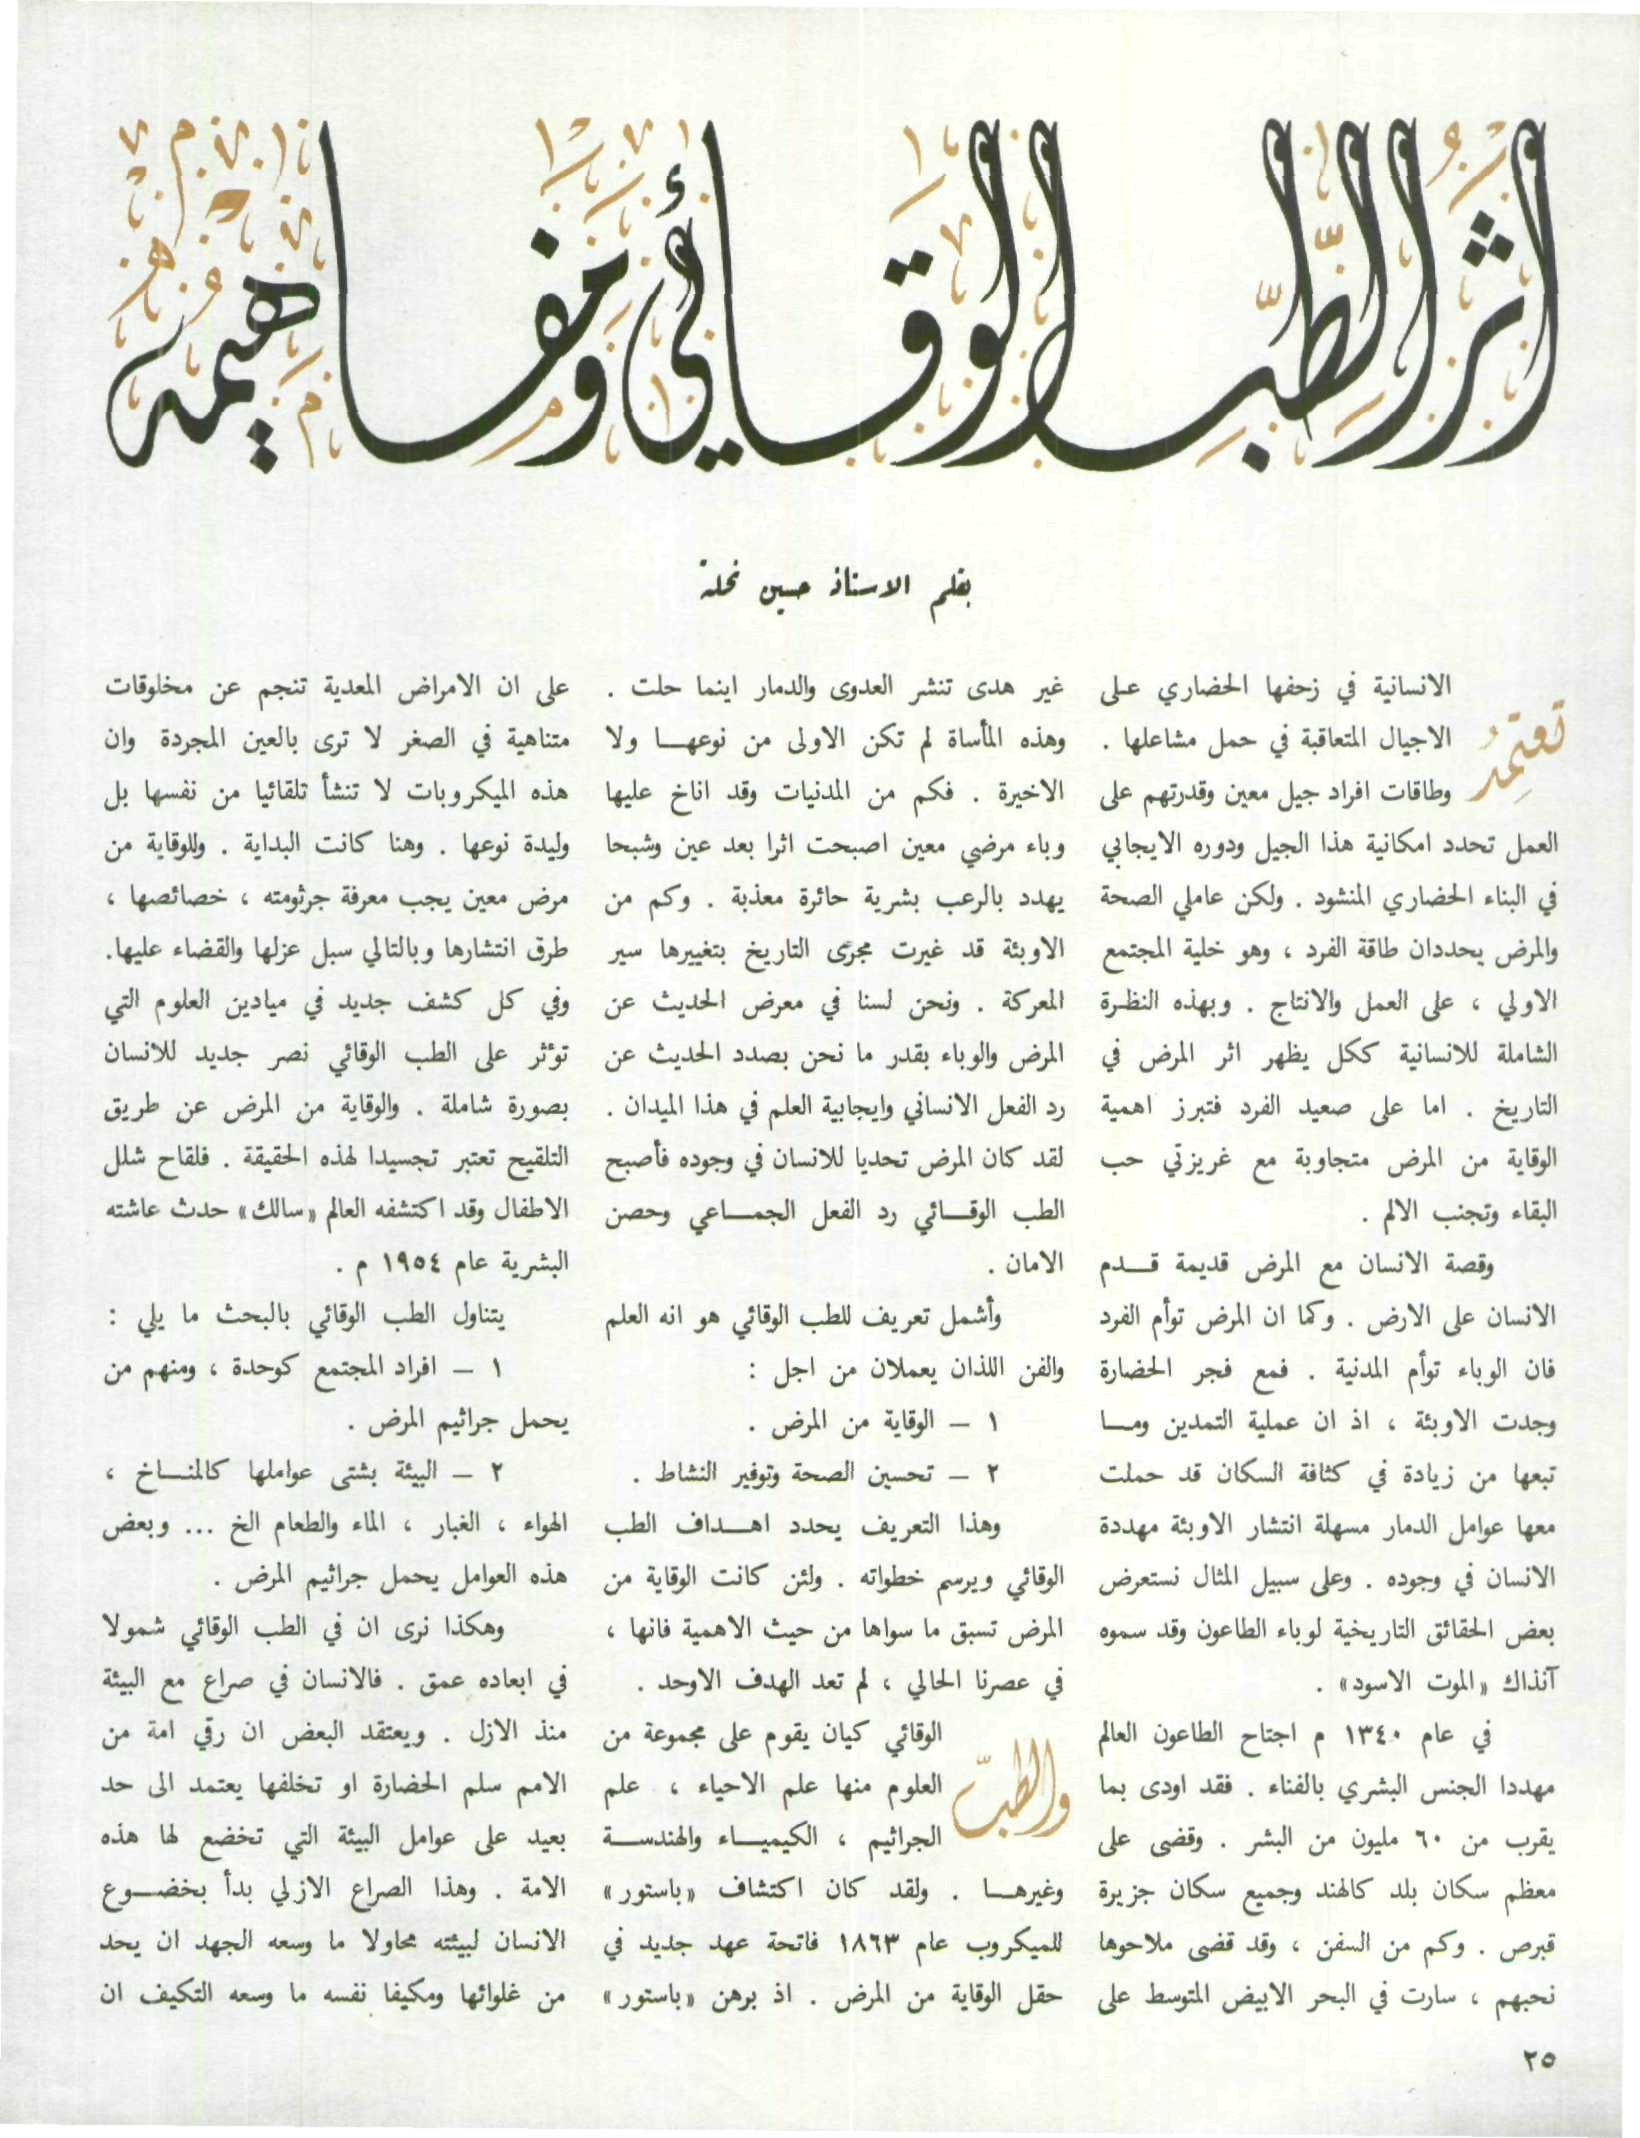 اثر الطب الوقائي ومفاهيمه
بقلم الاستاذ حسين نحلة
تعتمد
الانسانية في زحفها الحضاري على
الاجيال المتعاقبة في حمل مشاعلها .
وطاقات افراد جيل معين وقدرتهم على
العمل تحدد امكانية هذا الجيل ودوره الايجابي
في البناء الحضاري المنشود . ولكن عاملي الصحة
والمرض يحددان طاقة الفرد ، وهو خلية المجتمع
الاولي ، على العمل والانتاج . وبهذه النظرة
الشاملة للانسانية ككل يظهر اثر المرض في
التاريخ . اما على صعيد الفرد فتبرز اهمية
الوقاية من المرض متجاوبة مع غريزتي حب
البقاء وتجنب الالم .
وقصة الانسان مع المرض قديمة قدم
الانسان على الارض . وكما ان المرض توأم الفرد
فان الوباء توأم المدنية . فمع فجر الحضارة
وجدت الاوبئة ، اذ ان عملية التمدين وما
تبعها من زيادة في كثافة السكان قد حملت
معها عوامل الدمار مسهلة انتشار الاوبئة مهددة
الانسان في وجوده . وعلى سبيل المثال نستعرض
بعض الحقائق التاريخية لوباء الطاعون وقد سموه
آنذاك «الموت الاسود» .
في عام ١٣٤٠ م اجتاح الطاعون العالم
مهددا الجنس البشري بالفناء . فقد اودى بما
يقرب من ٦٠ مليون من البشر . وقضى على
معظم سكان بلد كالهند وجميع سكان جزيرة
قبرص . وكم من السفن ، وقد قضى ملاحوها
نحبهم ، سارت في البحر الابيض المتوسط على
غير هدى تنشر العدوى والدمار اينما حلت .
وهذه المأساة لم تكن الاولى من نوعها ولا
الاخيرة . فكم من المدنيات وقد اناخ عليها
وباء مرضي معين اصبحت اثرا بعد عين وشبحا
يهدد بالرعب بشرية حائرة معذبة . وكم من
الاوبئة قد غيرت مجرى التاريخ بتغييرها سير
المعركة . ونحن لسنا في معرض الحديث عن
المرض والوباء بقدر ما نحن بصدد الحديث عن
رد الفعل الانساني وايجابية العلم في هذا الميدان .
لقد كان المرض تحديا للانسان في وجوده فأصبح
الطب الوقائي رد الفعل الجماعي وحصن
الامان .
وأشمل تعريف للطب الوقائي هو انه العلم
والفن اللذان يعملان من اجل :
١ – الوقاية من المرض .
٢ – تحسين الصحة وتوفير النشاط .
وهذا التعريف يحدد اهداف الطب
الوقائي ويرسم خطواته . ولئن كانت الوقاية من
المرض تسبق ما سواها من حيث الاهمية فانها ،
في عصرنا الحالي ، لم تعد الهدف الاوحد .
والطب
الوقائي كيان يقوم على مجموعة من
العلوم منها علم الاحياء ، علم
الجراثيم ، الكيمياء والهندسة
وغيرها . ولقد كان اكتشاف «باستور»
للميكروب عام ١٨٦٣ فاتحة عهد جديد في
حقل الوقاية من المرض . اذ برهن «باستور»
على ان الامراض المعدية تنجم عن مخلوقات
متناهية في الصغر لا ترى بالعين المجردة وان
هذه الميكروبات لا تنشأ تلقائيا من نفسها بل
وليدة نوعها . وهنا كانت البداية . وللوقاية من
مرض معين يجب معرفة جرثومته ، خصائصها ،
طرق انتشارها وبالتالي سبل عزلها والقضاء عليها.
وفي كل كشف جديد في ميادين العلوم التي
تؤثر على الطب الوقائي نصر جديد للانسان
بصورة شاملة . والوقاية من المرض عن طريق
التلقيح تعتبر تجسيدا لهذه الحقيقة . فلقاح شلل
الاطفال وقد اكتشفه العالم «سالك» حدث عاشته
البشرية عام ١٩٥٤ م .
يتناول الطب الوقائي بالبحث ما يلي :
١ – افراد المجتمع كوحدة ، ومنهم من
يحمل جراثيم المرض .
٢ – البيئة بشتى عواملها كالمناخ ،
الهواء ، الغبار ، الماء والطعام الخ ... وبعض
هذه العوامل يحمل جراثيم المرض .
وهكذا نرى ان في الطب الوقائي شمولا
في ابعاده عمق . فالانسان في صراع مع البيئة
منذ الازل . ويعتقد البعض ان رقي امة من
الامم سلم الحضارة او تخلفها يعتمد الى حد
بعيد على عوامل البيئة التي تخضع لها هذه
الامة . وهذا الصراع الازلي بدأ بخضوع
الانسان لبيئته محاولا ما وسعه الجهد ان يحد
من غلوائها ومكيفا نفسه ما وسعه التكيف ان
٢٥